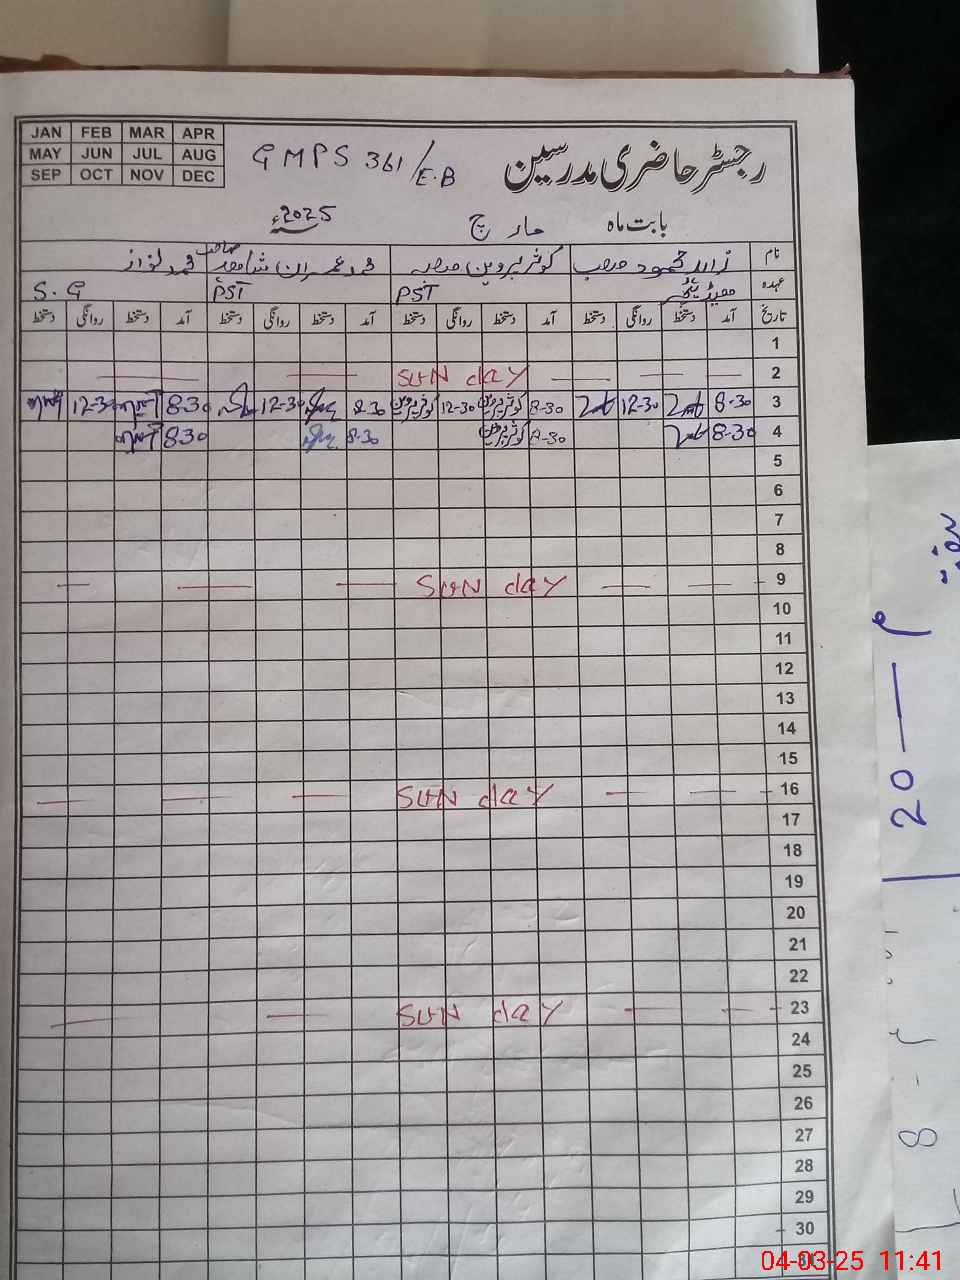 JAN FEB MAR APR
MAY JUN JUL AUG
SEP OCT NOV DEC
GMPS 361/E.B
رجسٹر حاضری مدرسین
بابت ماہ مارچ 2025ء
نام زاہد محمود صاحب کوثر پروین صاحبہ محمد عمران شاہد صاحب محمد نواز
عہدہ PST PST S.G
تاریخ آمد دستخط روانگی دستخط آمد دستخط روانگی دستخط آمد دستخط روانگی دستخط آمد دستخط روانگی دستخط
1
2 SUN day
3 8-30 12-30 8-30 کوثر پروین 12-30 کوثر پروین 8-30 12-30 8-30 12-30
4 8-30 8-30 کوثر پروین 8-30 8-30
5
6
7
8
9 SUN day
10
11
12
13
14
15
16 SUN day
17
18
19
20
21
22
23 SUN day
24
25
26
27
28
29
30
31
20
8
04-03-25 11:41